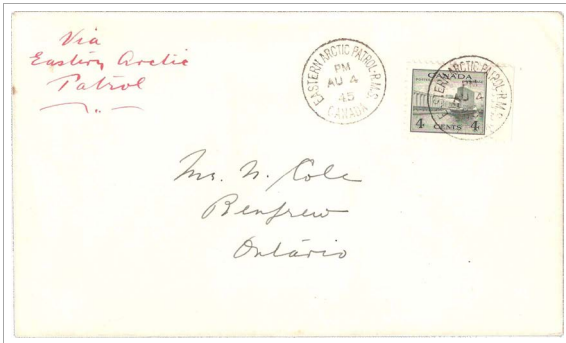 Via
Eastern Arctic
Patrol
EASTERN ARCTIC PATROL-R.M.S.
PM
AU 4
45
CANADA
CANADA
4 CENTS 4
EASTERN ARCTIC-PAROL-R.M.S.
PM
AU 4
Mr. N. Cole
Renfrew
Ontario